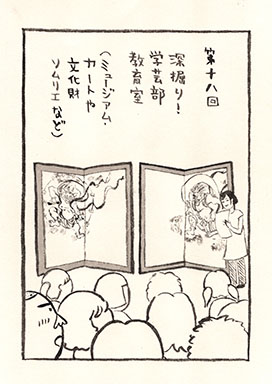 第十八回
深掘り!
学芸部
教育室
(ミュージアム・
カートや
文化財
ソムリエなど)